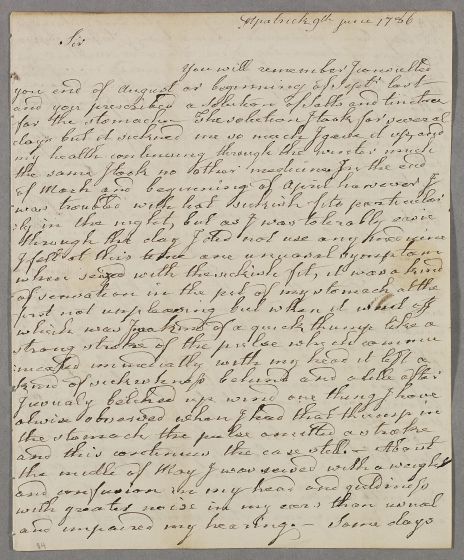 Kilpatrick 9th June 1786
Sir
You will remember I consulted
you end of August or beginning of Septr last
and you prescribed a solution of Salts and tincture
for the stomach. The solution I took for several
days but it sickened me so much I gave it up and
my health continuing through the winter much
the same I took no other medicine. In the end
of March and beginning of April however I
was troubled with hot sickish fits particular
ly in the night, but as I was tolerably easie
through the day I did not use any medicine
I felt at this time one unusual symptom
when seized with the sickish fits, it was a kind
of sensation in the pit of my stomach at the
first not unpleasing but when it went off
which was making of a quick thump like a
strong stroke of the pulse which commu
nicated immediatly with my head it left a
kind of sickishness behind and a little after
I usualy belched up wind one thing I have
alwise observed when I had that thump in
the stomach the pulse omitted a stroke
and this continues the case still. - About
the middle of May I was seised with a weight
and confusion in my head and giddiness
with greater noise in my ears than usual
and impaired my hearing. - Some days